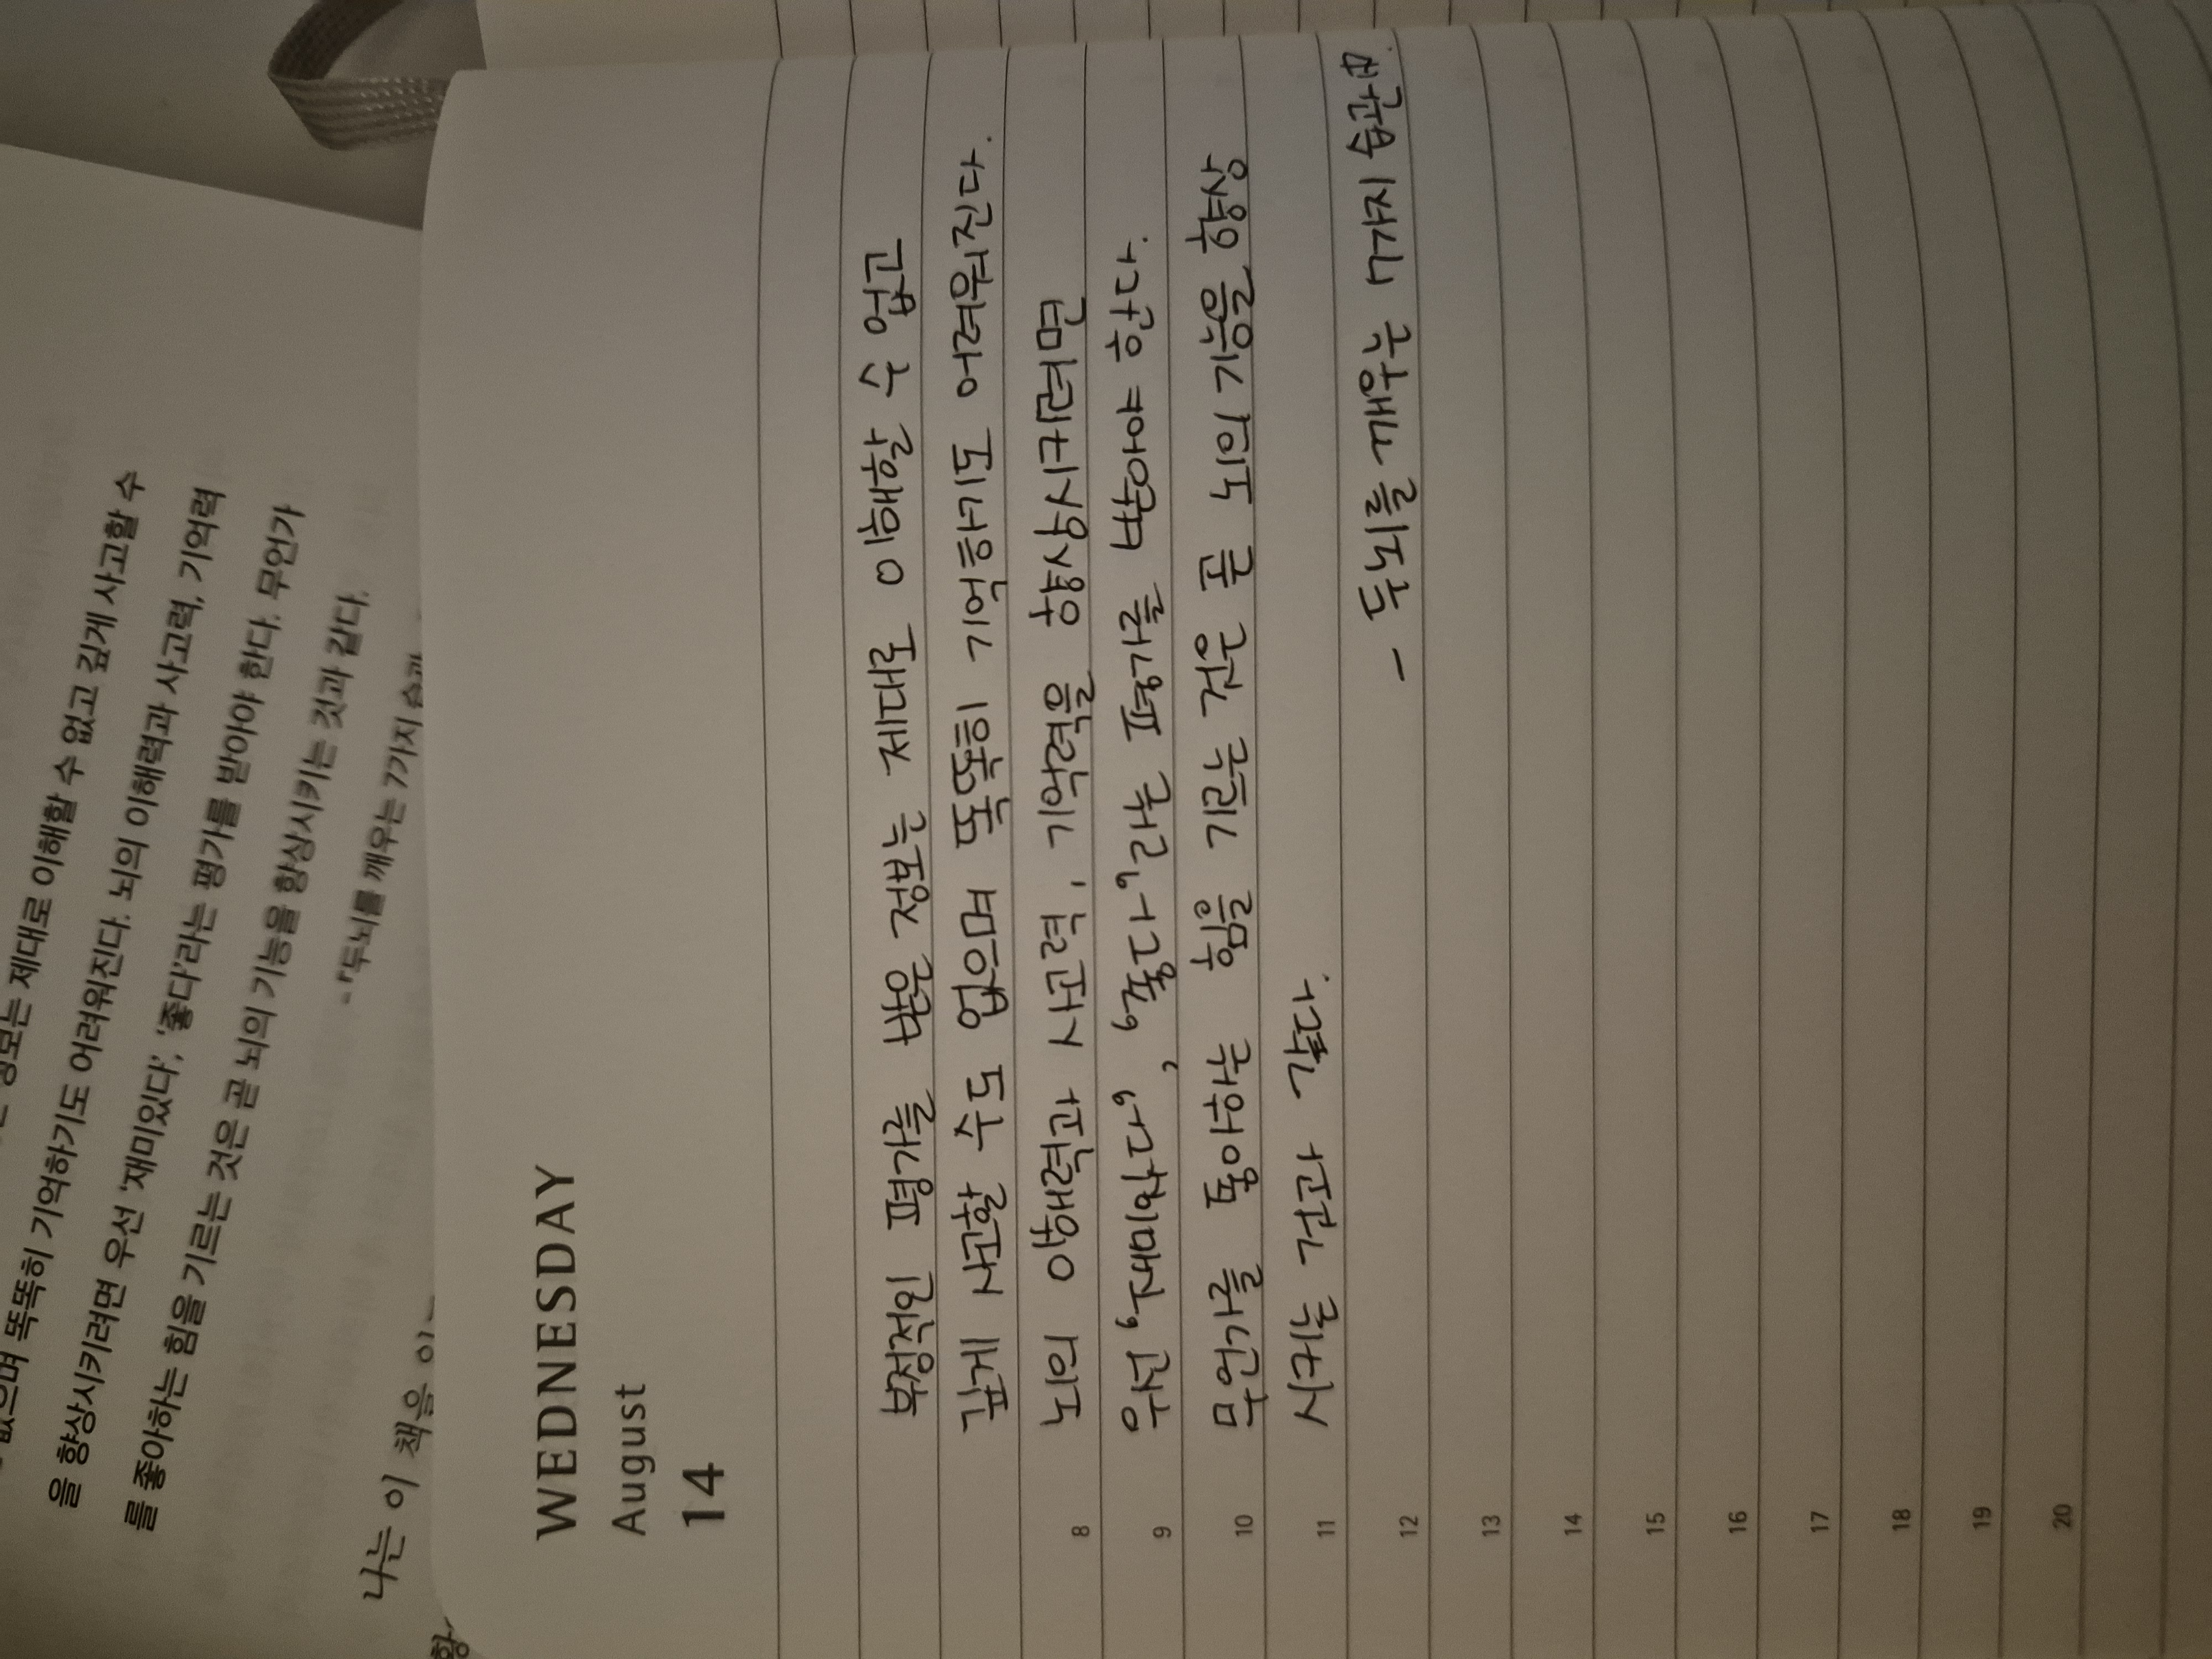 정보는 제대로 이해할 수 없고 깊게 사고할 수
없으며 똑똑히 기억하기도 어려워진다. 뇌의 이해력과 사고력, 기억력
을 향상시키려면 우선 '재미있다', '좋다'라는 평가를 받아야 한다. 무언가
를 좋아하는 힘을 기르는 것은 곧 뇌의 기능을 향상시키는 것과 같다.
- 『두뇌를 깨우는 7가지
나는 이 책을
WEDNESDAY
August
14
부정적인 평가를 받은 정보는 제대로 이해할 수 없고
깊게 사고할 수도 없으며 똑똑히 기억하는데도 어려워진다.
뇌의 이해력과 사고력, 기억력을 향상시키려면
우선, '재미있다', '좋다'라는 평가를 받아야 한다.
무언가를 좋아하는 힘을 기르는 것은 곧 뇌의 기능을 향상
시키는 것과 같다.
- 두뇌를 깨우는 7가지 습관
8
9
10
11
12
13
14
15
16
17
18
19
20